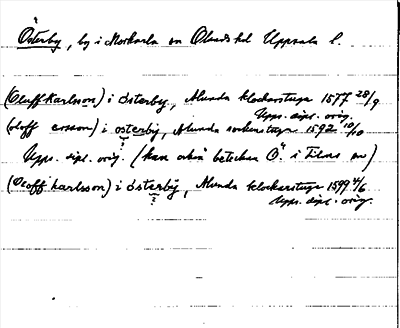 Österby, by i Morkarla sn Olands hd Uppsala l.
(Oluff Karlsson) i österby, Alunda klockarstuga 1577 28/9
Upps. dipl. orig.
(oloff ersson) i osterby, Alunda sockenstuga 1592 10/10
Upps. dipl. orig. (kan också beteckna Ö. i Films sn)
(Oloff karlsson) i österby, Alunda klockarstuga 1599 4/6
Upps. dipl. orig.